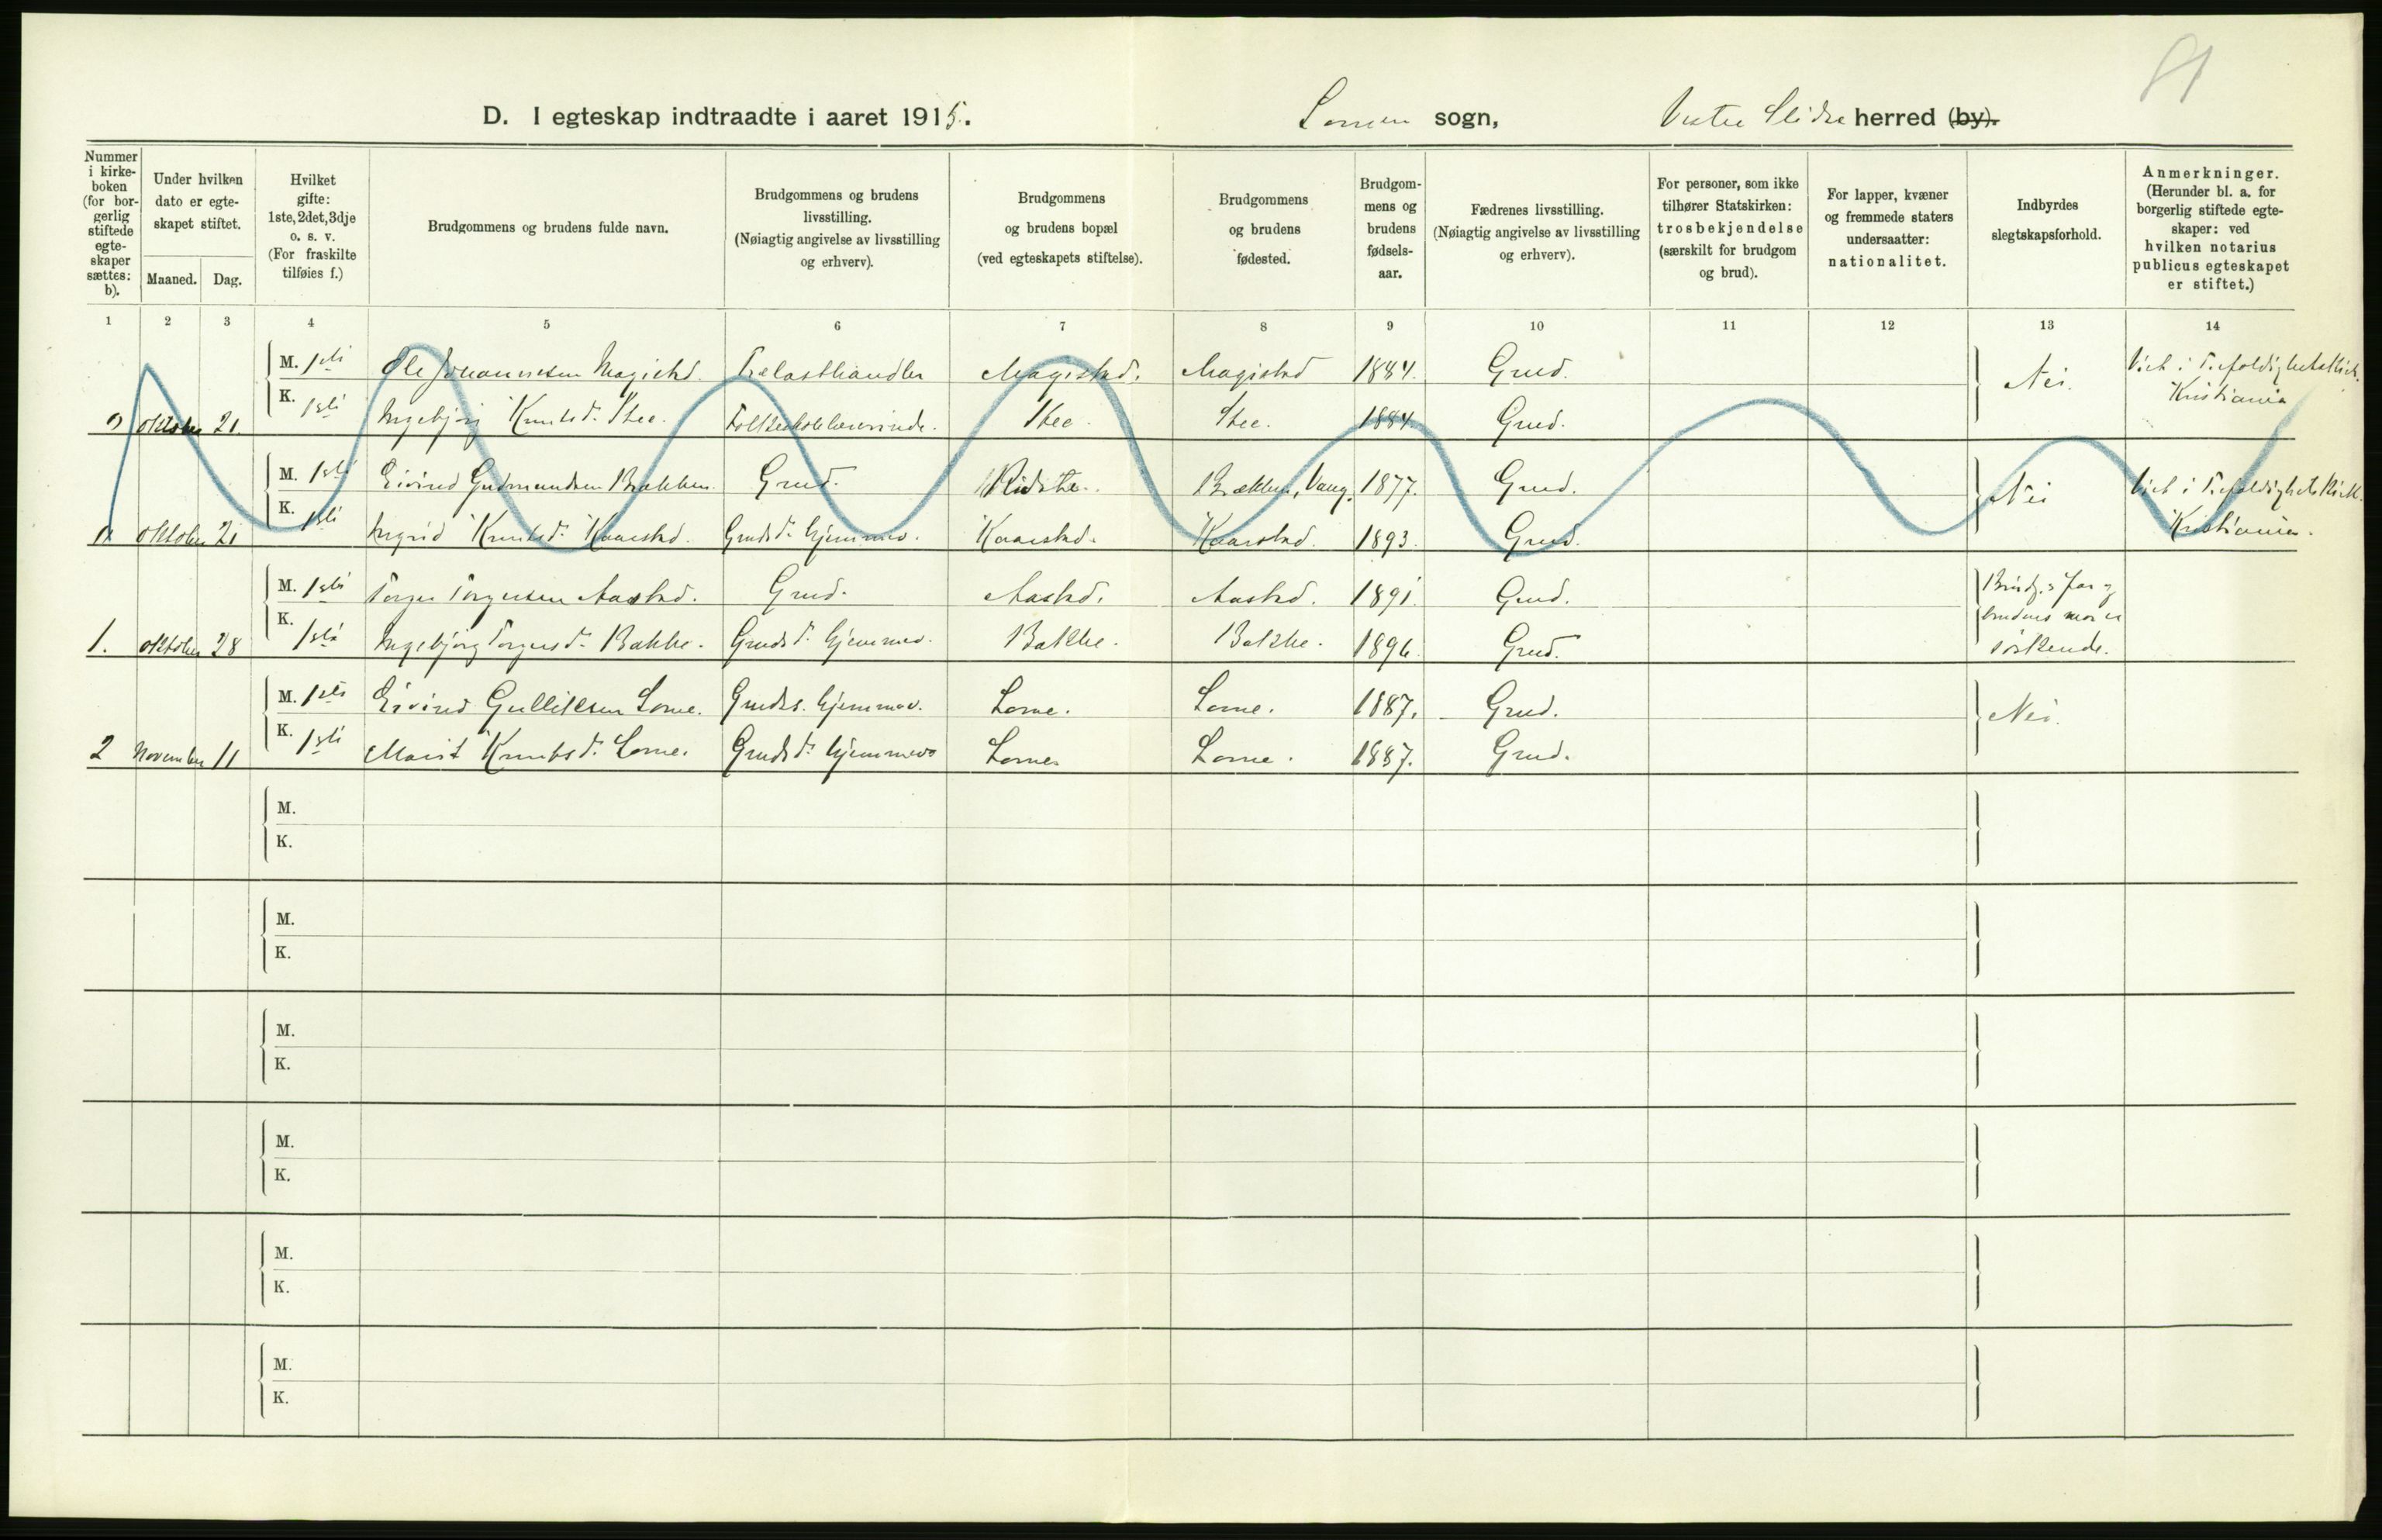 81
D. I egteskap indtraadte i aaret 1915. Lomen sogn, Vestre Slidre herred (by).
Nummer i kirke-boken (for bor-gerlig stiftede egte-skaper sættes: b).
Under hvilken dato er egte-skapet stiftet.
Maaned. Dag.
Hvilket gifte: 1ste, 2det, 3dje o. s. v. (For fraskilte tilføies f.)
Brudgommens og brudens fulde navn.
Brudgommens og brudens livsstilling. (Nøiagtig angivelse av livsstilling og erhverv).
Brudgommens og brudens bopæl (ved egteskapets stiftelse).
Brudgommens og brudens fødested.
Brudgom-mens og brudens fødsels-aar.
Fædrenes livsstilling. (Nøiagtig angivelse av livsstilling og erhverv).
For personer, som ikke tilhører Statskirken: trosbekjendelse (særskilt for brudgom og brud).
For lapper, kvæner og fremmede staters undersaatter: nationalitet.
Indbyrdes slegtskapsforhold.
Anmerkninger. (Herunder bl. a. for borgerlig stiftede egte-skaper: ved hvilken notarius publicus egteskapet er stiftet.)
1 2 3 4 5 6 7 8 9 10 11 12 13 14
M. 1ste Ole Johannesen Magistad. Trælasthandler Magistad. Magistad 1884. Grud. Nei. Viet i Trefoldighetskirk. Kristiania
K. 1ste Ingebjørg Knutsd. Stee. Folkeskolelærerinde. Stee Stee. 1884. Grud.
oktober 21.
M. 1ste Eivind Gudmundsen Bækken Grud. Ridste. Bækken, Vang. 1877. Grud. Nei Viet i Trefoldighetskirk. Kristiania.
K. 1ste Ingrid Knutsd. Kaarstad. Grudsd. hjemmev. Kaarstad. Kaarstad. 1893. Grud.
oktober 21
M. 1ste Torger Torgersen Aastad. Grud. Aastad. Aastad. 1891. Grud. Brudg.s far og brudens mor er søskende.
K. 1ste Ingebjørg Torgersd. Bakke. Grudsd. hjemmev. Bakke. Bakke. 1896. Grud.
1. oktober 28
M. 1ste Eivind Gulliksen Lome. Gruds. hjemmev. Lome. Lome. 1887. Grud. Nei.
K. 1ste Marit Knutsd. Lome. Grudsd. hjemmev. Lome. Lome. 1887. Grud.
2 November 11
M.
K.
M.
K.
M.
K.
M.
K.
M.
K.
M.
K.